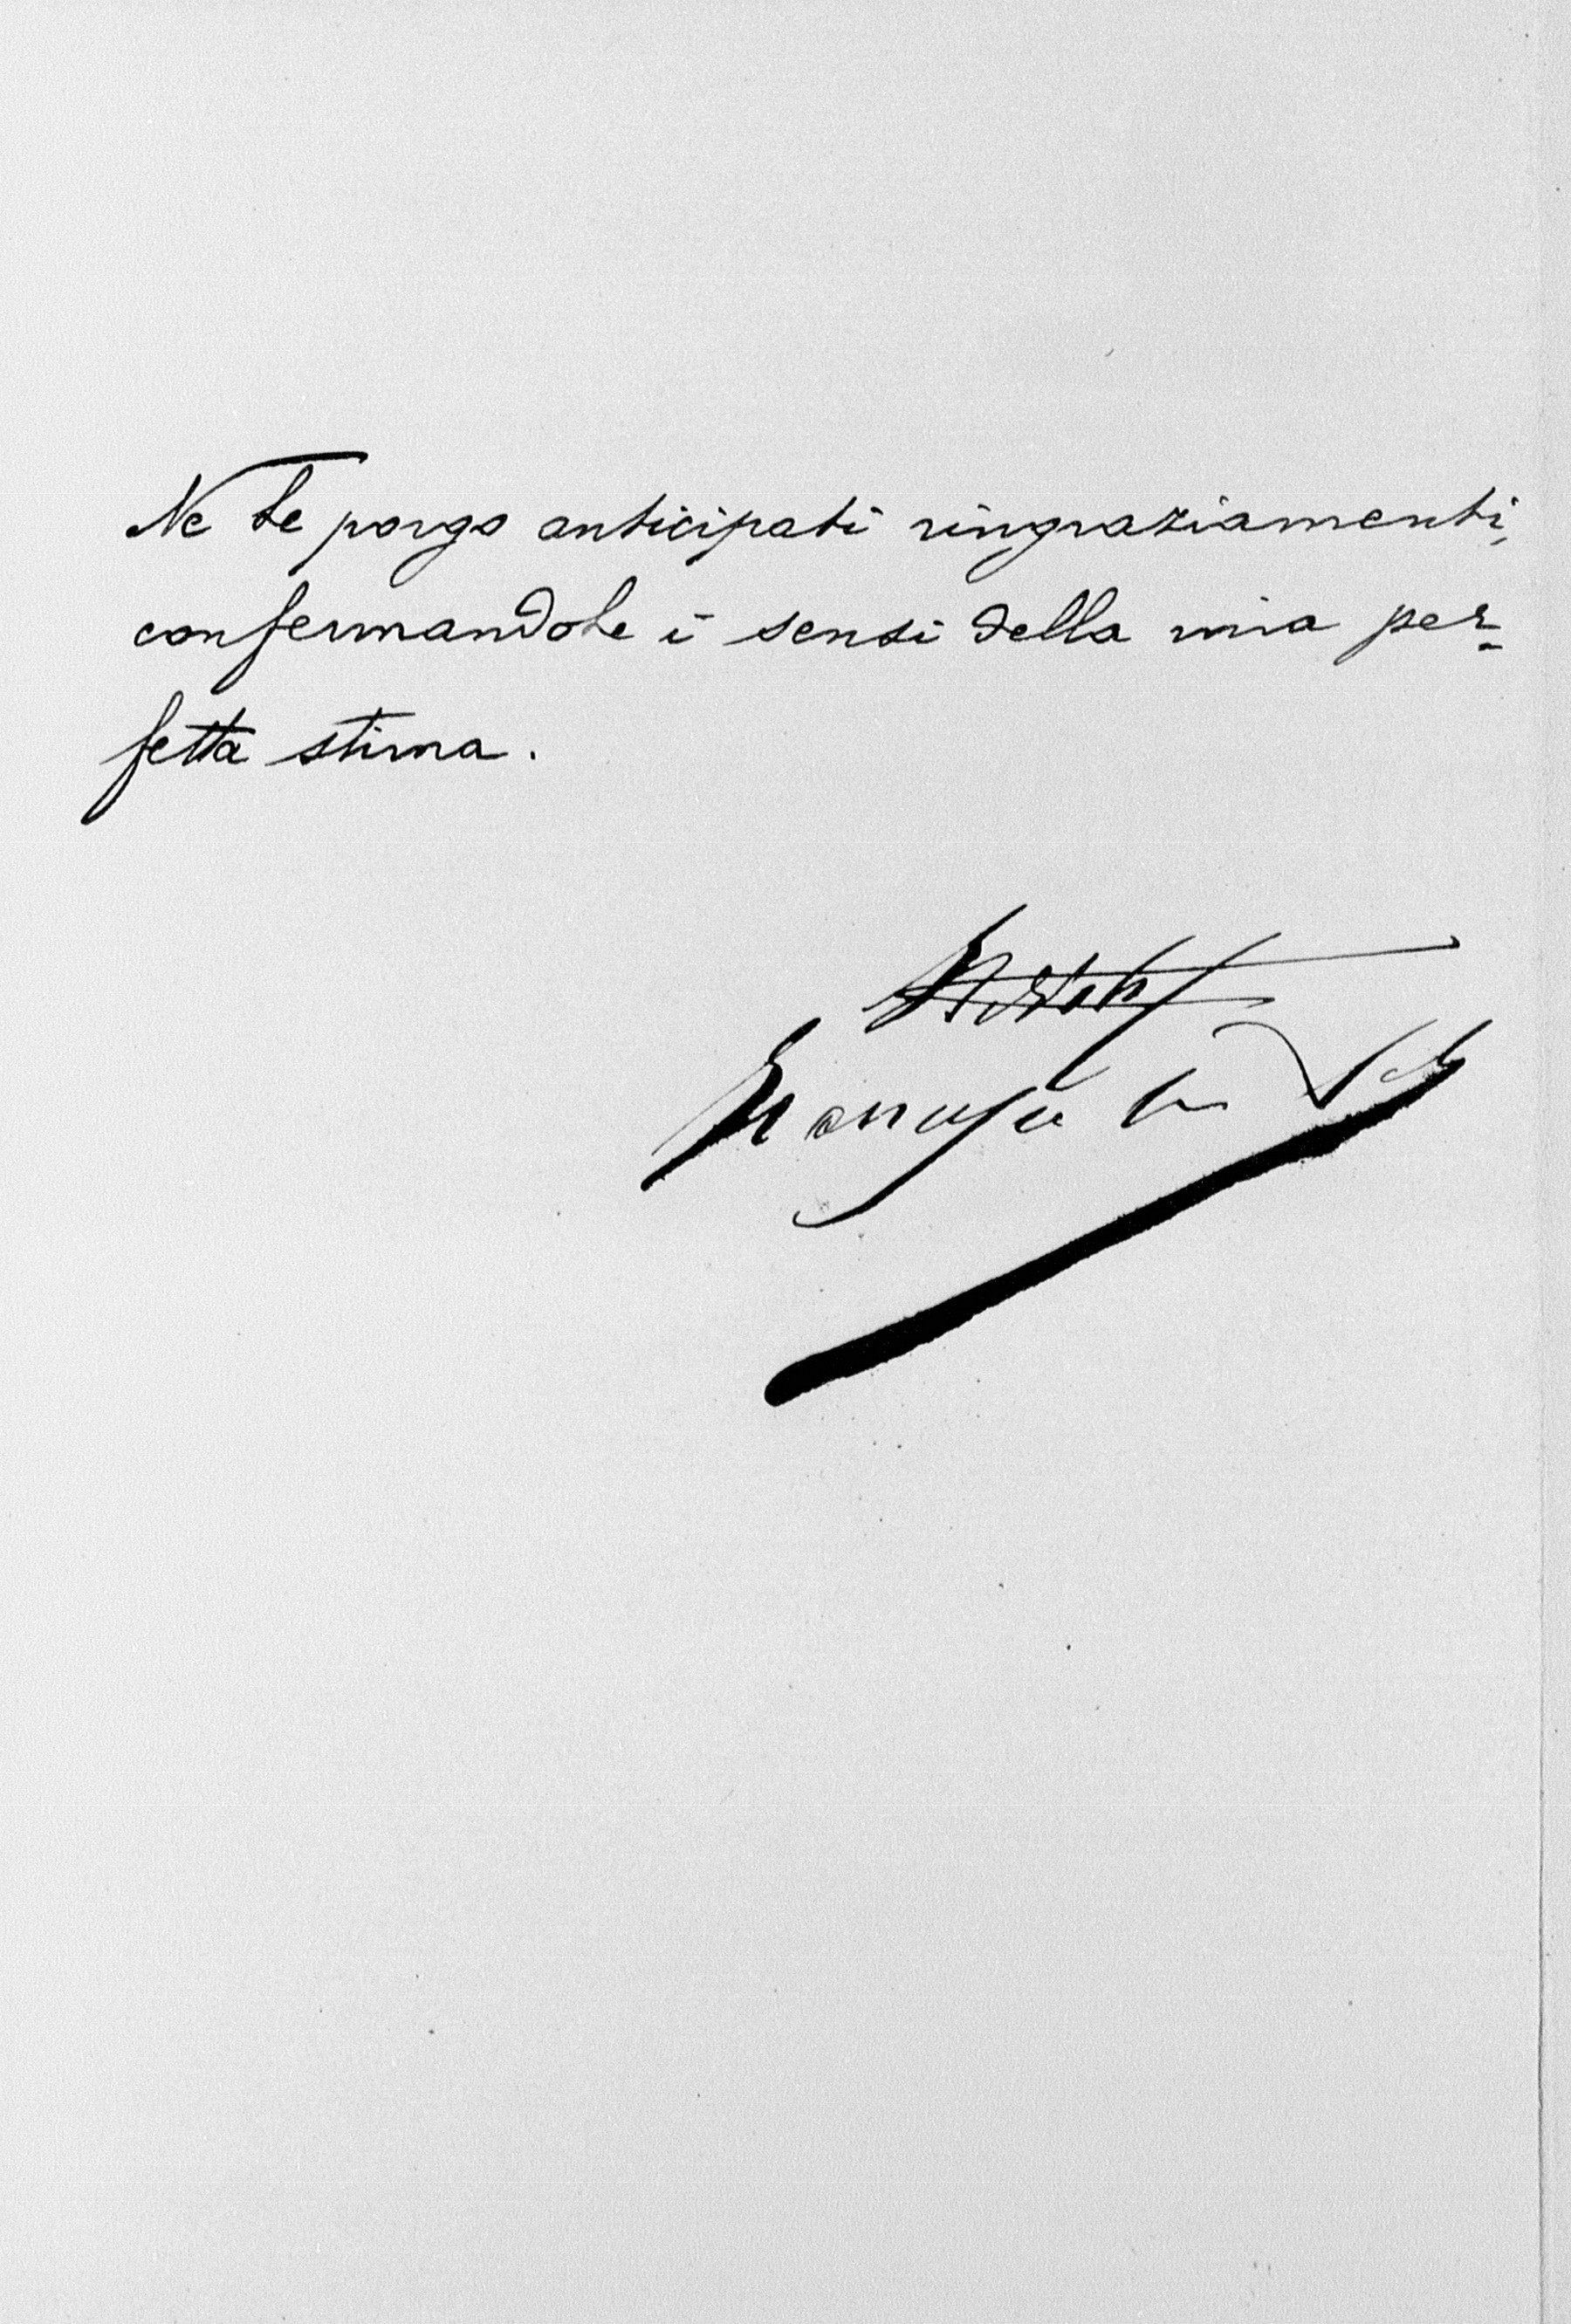 Ne Le porgo anticipati ringraziamenti,
confermandole i sensi della mia per-
fetta stima.